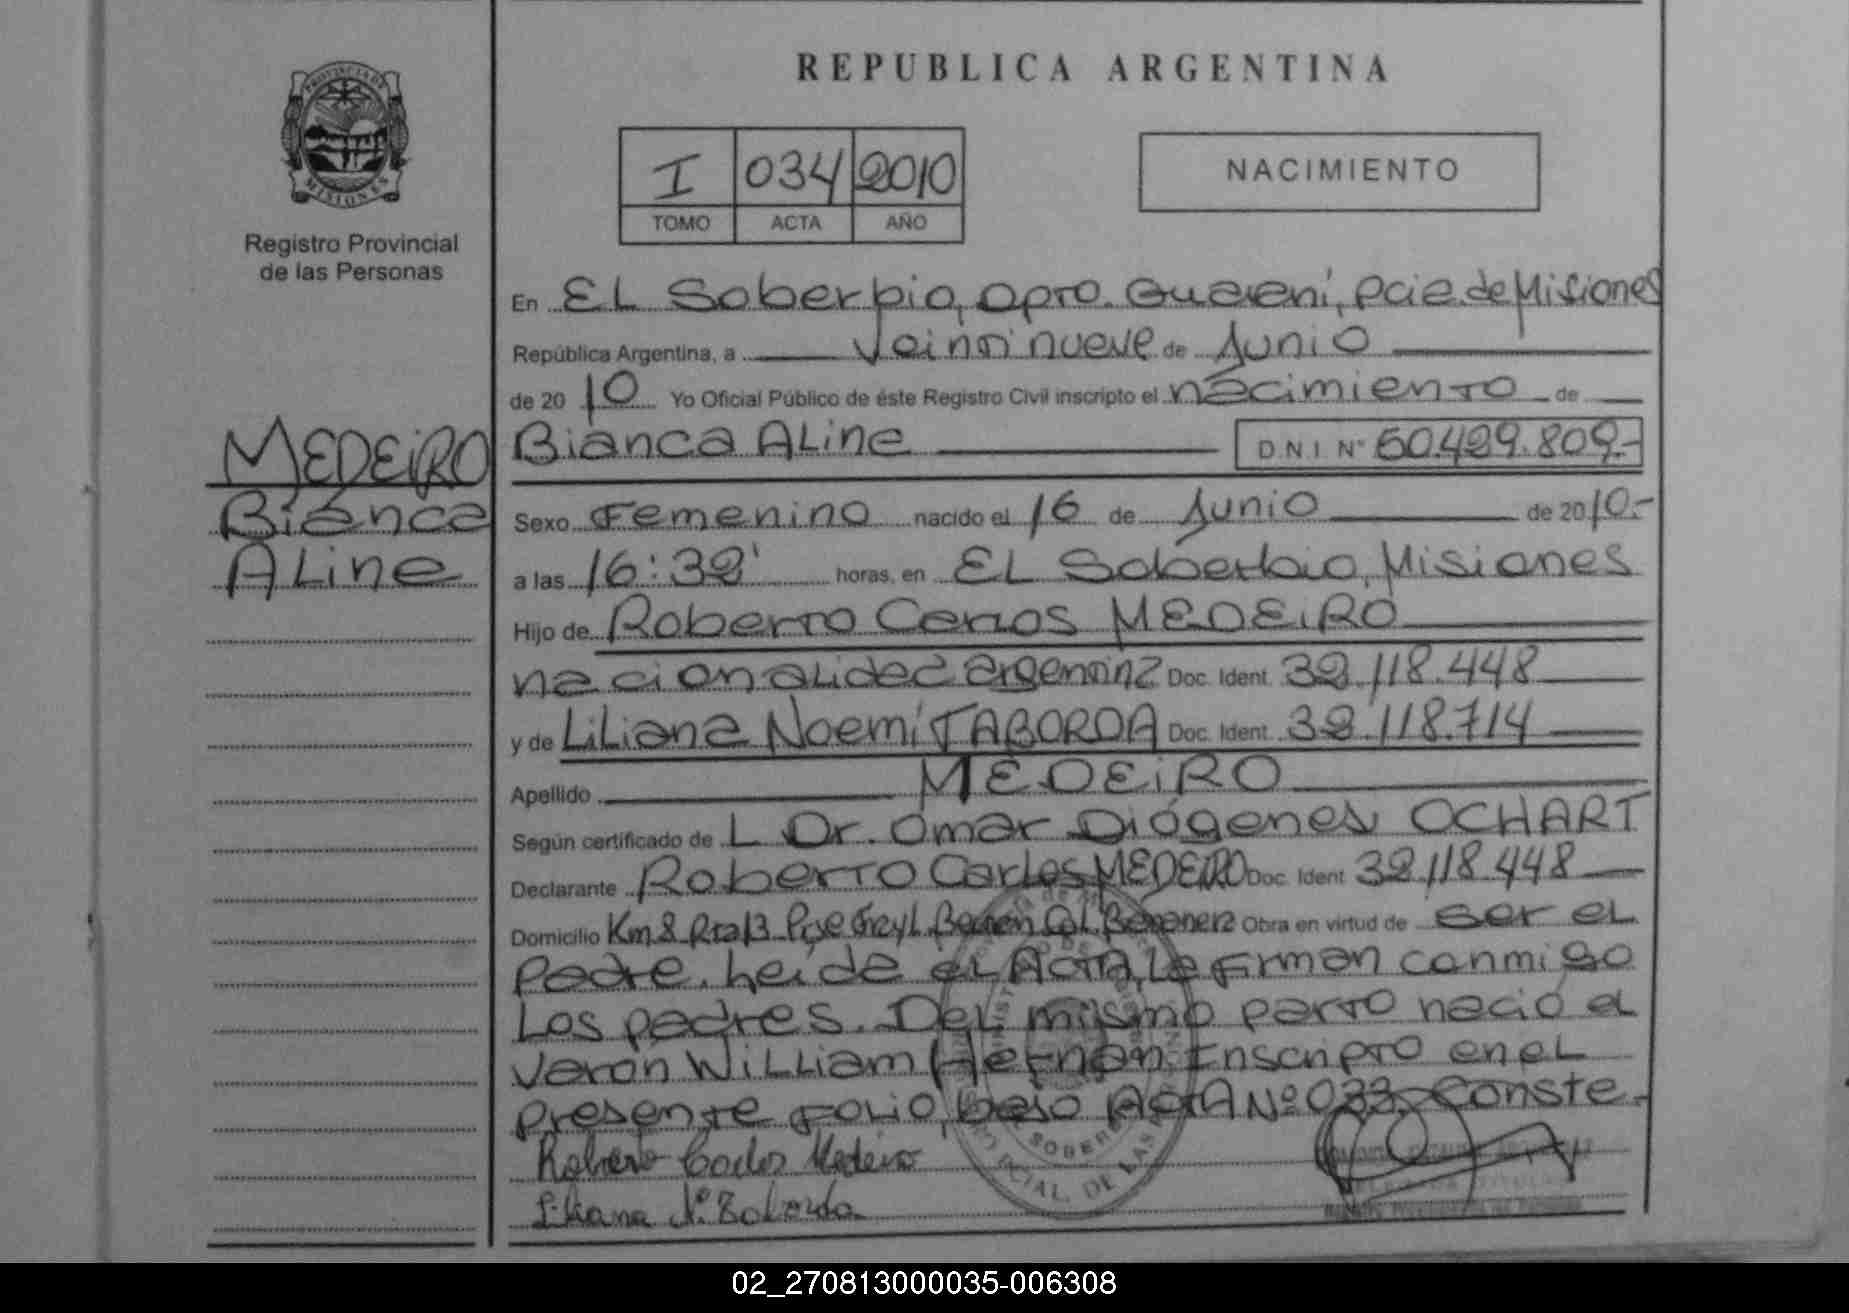 REPUBLICA ARGENTINA
PROVINCIA DE MISIONES
Registro Provincial
de las Personas
I 034 2010
TOMO ACTA AÑO
NACIMIENTO
En EL Soberbio, Dpto. Guaraní, Pcia. de Misiones
República Argentina, a Veintinueve de Junio
de 2010 Yo Oficial Público de éste Registro Civil inscripto el nacimiento de
MEDEIRO
Bianca
ALine
Bianca ALine D.N.I. Nº 50.429.809.-
Sexo Femenino nacido el 16 de Junio de 2010.-
a las 16:32' horas, en EL Soberbio, Misiones
Hijo de Roberto Carlos MEDEIRO
nacionalidad argentina Doc. Ident. 32.118.448
y de LiLiana Noemí TABORDA Doc. Ident. 32.118.714
Apellido MEDEIRO
Según certificado de L Dr. Omar Diógenes OCHART
Declarante Roberto Carlos MEDEIRO Doc. Ident 32.118.448
Domicilio Km 8 Rta 13 Pje Obra en virtud de ser eL
padre. Leída eL ACTA, La Firman conmigo
Los padres. DeL mismo parto nació eL
Varón WiLLiam Hernán. Inscripto en eL
presente FoLio, bajo ACTA Nº 033. Conste.
Roberto Carlos Medeiro
Liliana N. Taborda
02_270813000035-006308